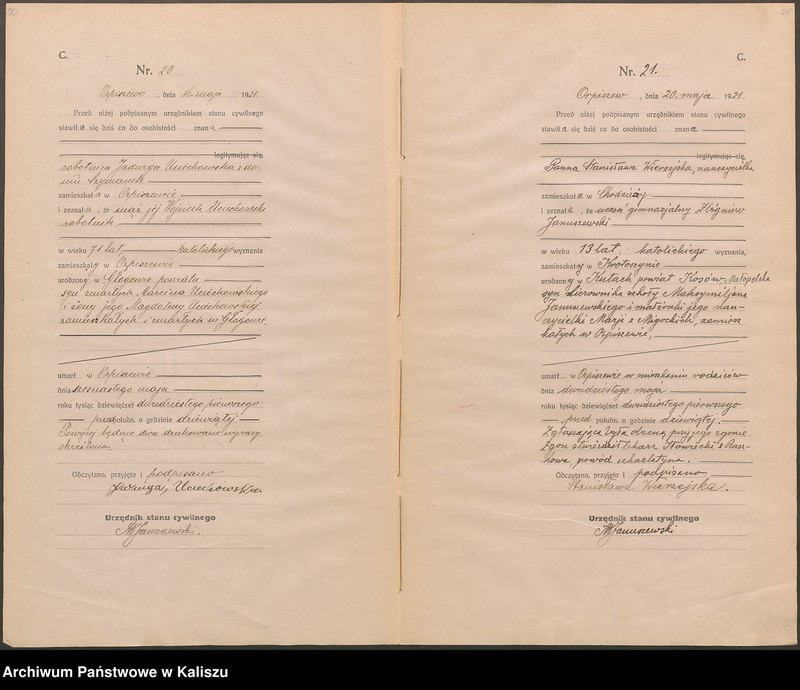 20
C.
Nr. 20
Orpiszewo, dnia 16. maja 1921.
Przed niżej podpisanym urzędnikiem stanu cywilnego
stawiła się dziś co do osobistości znana
legitymując się
robotnica Jadwiga Uciechowska z do-
mu Szymanek
zamieszkała w Orpiszewie
i zeznała, że mąż jej Wojciech Uciechowski
robotnik
w wieku 71 lat katolickiego wyznania
zamieszkały w Orpiszewie
urodzony w Głogowie powiatu
syn zmarłych Marcina Uciechowskiego
i żony jego Magdaleny Uciechowskiej
zamieszkałych i zmarłych w Głogowie.
umarł w Orpiszewie
dnia szesnastego maja
roku tysiąc dziewięćset dwudziestego pierwszego
przed połudn. o godzinie dziewiątej
Powyżej będące dwa drukowane wyrazy
skreślono.
Odczytano, przyjęto i podpisano
Jadwiga, Uciechowska.
Urzędnik stanu cywilnego
MJanuszewski.
21
C.
Nr. 21.
Orpiszew, dnia 20. maja 1921
Przed niżej podpisanym urzędnikiem stanu cywilnego
stawiła się dziś co do osobistości znana
legitymując się
Panna Stanisława Wierzejska, nauczycielka
zamieszkała w Chodzieży
i zeznała, że uczeń gimnazjalny Zbigniew
Januszewski
w wieku 13 lat, katolickiego wyznania,
zamieszkały w Krotoszynie
urodzony w Kutach powiat Kosów-Małopolska
syn kierownika szkoły Maksymiljana
Januszewskiego i małżonki jego nau-
czycielki Marji z Migockich, zamiesz
kałych w Orpiszewie,
umarł w Orpiszewie w mieszkaniu rodziców
dnia dwudziestego maja
roku tysiąc dziewięćset dwudziestego pierwszego
przed połudn. o godzinie dziewiątej.
Zgłaszająca była obecną przy jego zgonie.
Zgon stwierdził lekarz Słowiecki z Rasz-
kowa, powód szkarlatyna.
Odczytano, przyjęto i podpisano
Stanisława Wierzejska.
Urzędnik stanu cywilnego
MJanuszewski
Archiwum Państwowe w Kaliszu